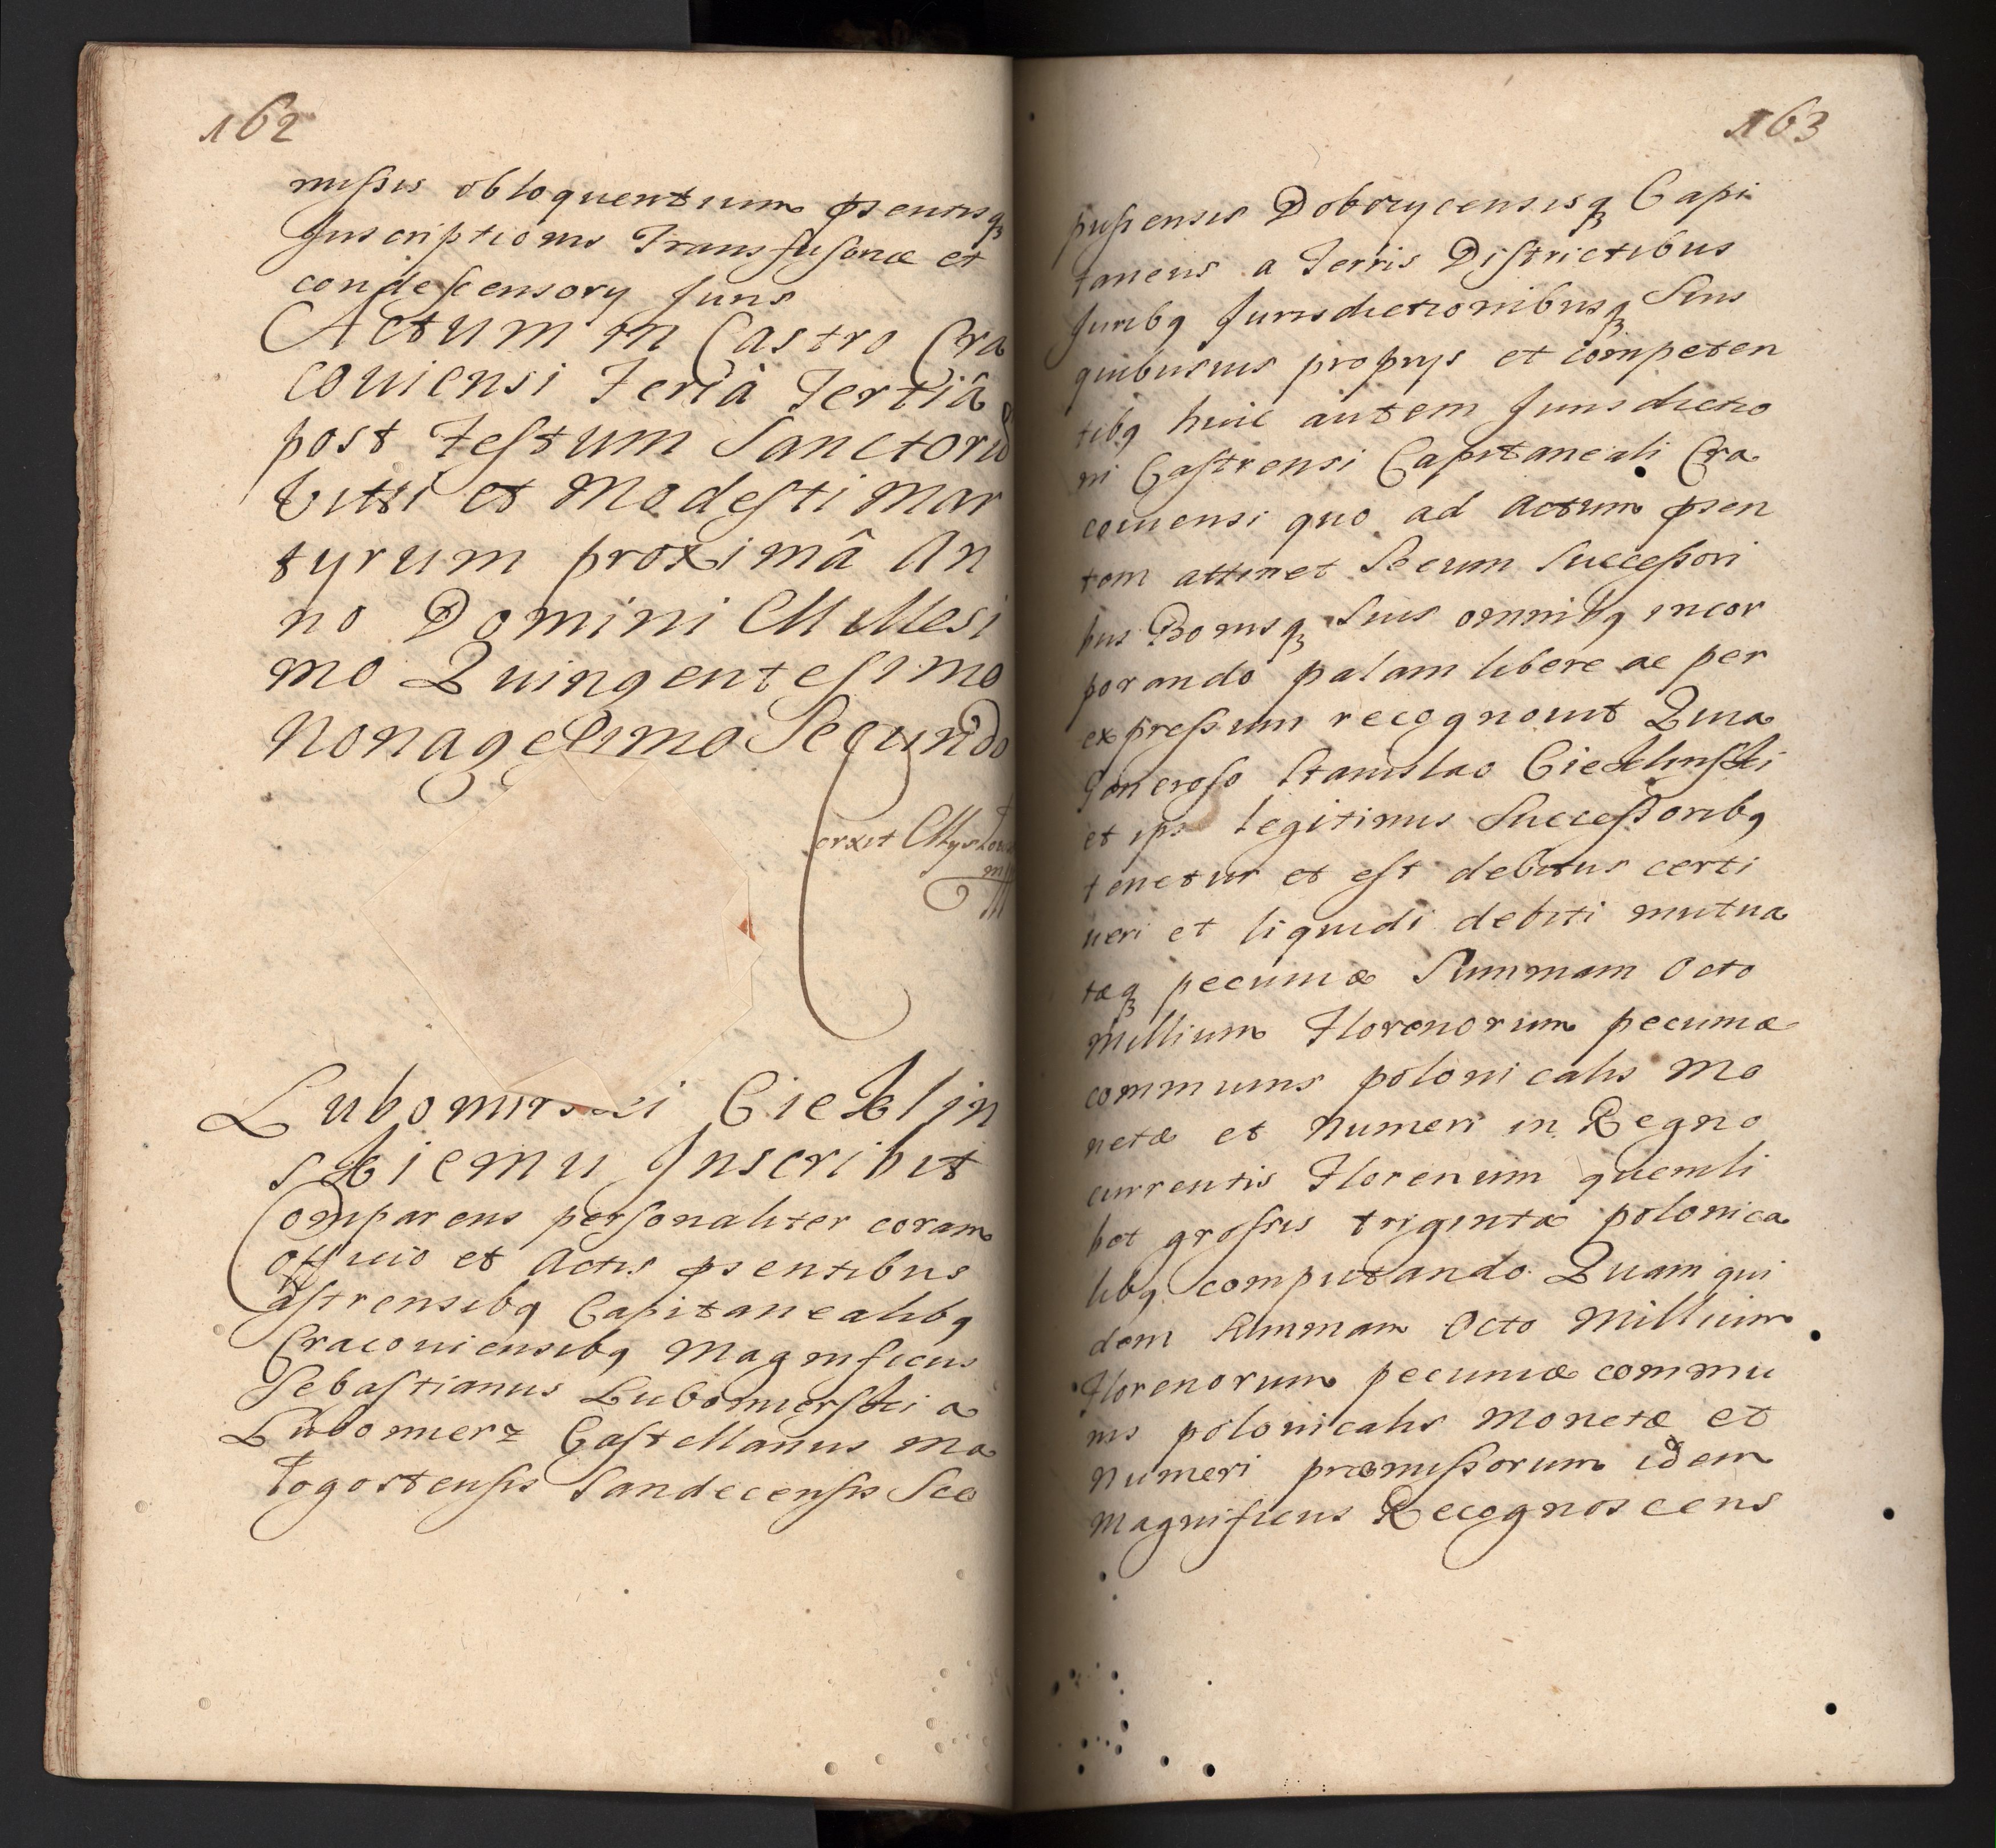 162
missis obloquentium psentisq
Inscriptionis Transfusonæ et
condescensory Juris
Actum in Castro Cra
coviensi Feriâ Tertiâ
post Festum Sanctorū
Viti et Modesti Mar
tyrum proximâ An
no Domini Millesi
mo Quingentesimo
Nonagesimo Secundo
Lubomirski Cieklin
skiemu Inscribit
Comparens personaliter coram
Officio et Actis psentibus
Castrensibq Capitanealibq
Cracoviensibq Magnificus
Sebastianus Lubomierski a
Lubomierz Castellanus Ma
logostensis Sandecensis Sce
163
pusiensis Dobczycensisq Capi
taneus a Terris Districtibus
Juribq Jurisdictionibusq Suis
quibusuis proprys et competen
tibq huic autem Jurisdictio
ni Castrensi Capitaneali Cra
couiensi quo ad actum psen
tem attinet Se cum Successori
bus Bonisq Suis omnibq incor
porando palam libere ac per
expressum recognouit Quia
Generoso Stanislao Cieklinski
et ips legitimis Successoribq
tenetur et est debitus certi
ueri et liquidi debiti mutua
tæq pecuniæ Summam Octo
Millium Florenorum pecuniæ
communis polonicalis Mo
netæ et Numeri in Regno
currentis Florenum quemli
bet grossis triginta polonica
libq computando Quam qui
dem Summam Octo Millium
Florenorum pecuniæ commu
nis polonicalis Monetæ et
Numeri præmissorum idem
Magnificus Recognoscens